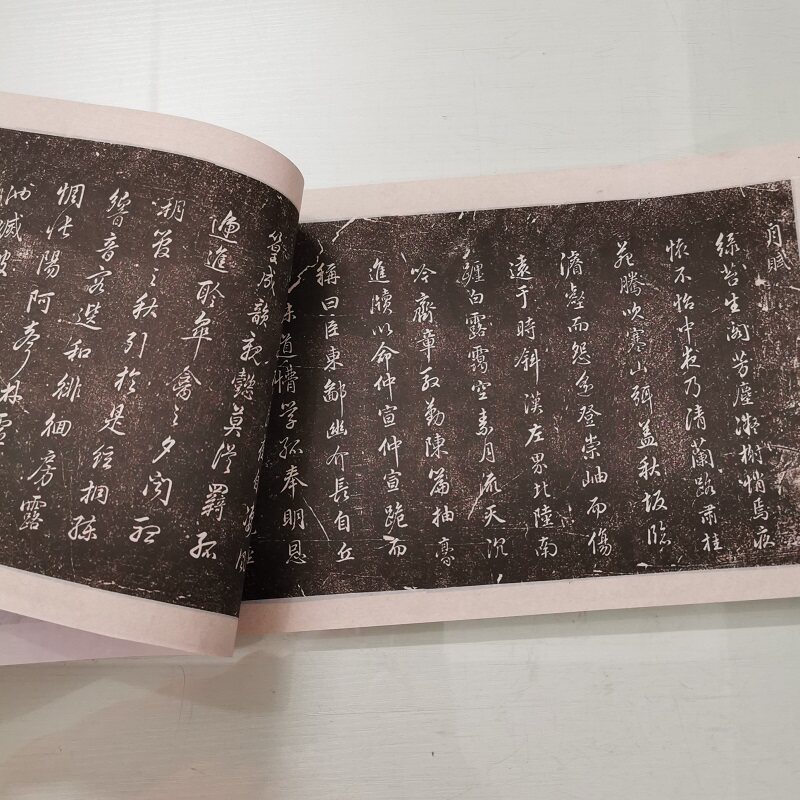 月賦
綠苔生閣芳塵凝榭悄焉疚
懷不怡中夜乃清蘭路肅桂
苑騰吹寒山弭蓋秋坂臨
濬壑而怨遙登崇岫而傷
遠于時斜漢左界北陸南
躔白露靄空素月流天沉
吟齊章殷勤陳篇抽豪
進牘以命仲宣仲宣跪而
稱曰臣東鄙幽介長自丘
道懵學孤奉明恩
篁成韻親懿莫從羈孤
遞進聆皋禽之夕聞聽
朔管之秋引於是絃桐練
響音容選和徘徊房露
惆悵陽阿聲林虛
池滅波